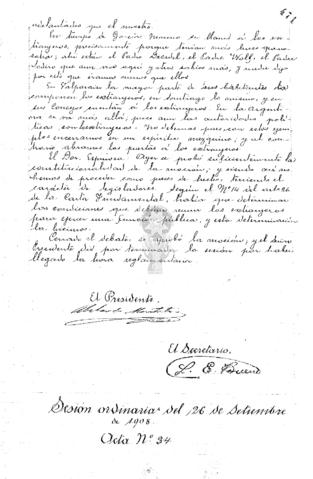 adelantados que el nuestro.
En tiempo de García Moreno se llamó á los ex-
tranjeros, precisamente porque tenían más luces que no-
sotros; ahí están el Padre Dressel, el Padre Wolf, el Padre
Sodiro que aun vive aquí y otros sabios más, y nadie dijo
por esto que éramos menos que ellos.
En Valparaíso la mayor parte de sus habitantes la
componen los extranjeros, en Santiago lo mismo, y en
sus Concejos los extranjeros. En la Argenti-
na es más allá, pues aun las autoridades polí-
ticas son extranjeros. No debemos pues, con estos ejem-
plos encerrarnos en un espíritu mezquino, y al con-
trario abramos las puertas á los extranjeros.
El Dor. Espinosa Ayer se probó suficientemente la
constitucionalidad de la moción; y siendo así no
hemos de proceder como jueces de hecho, teniendo el
carácter de legisladores. Según el Nº 14 del art. 26
de la Carta Fundamental, había que determinar
las condiciones que deben reunir los extranjeros
para ejercer una función pública, y esta determinación
la hicimos.
Cerrado el debate, se aprobó la moción; y el señor
Presidente dió por terminada la sesión por haber
llegado la hora reglamentaria.
El Presidente.
El Secretario.
L. E. Bueno
Sesión ordinaria del 26 de Setiembre
de 1908.
Acta Nº 34